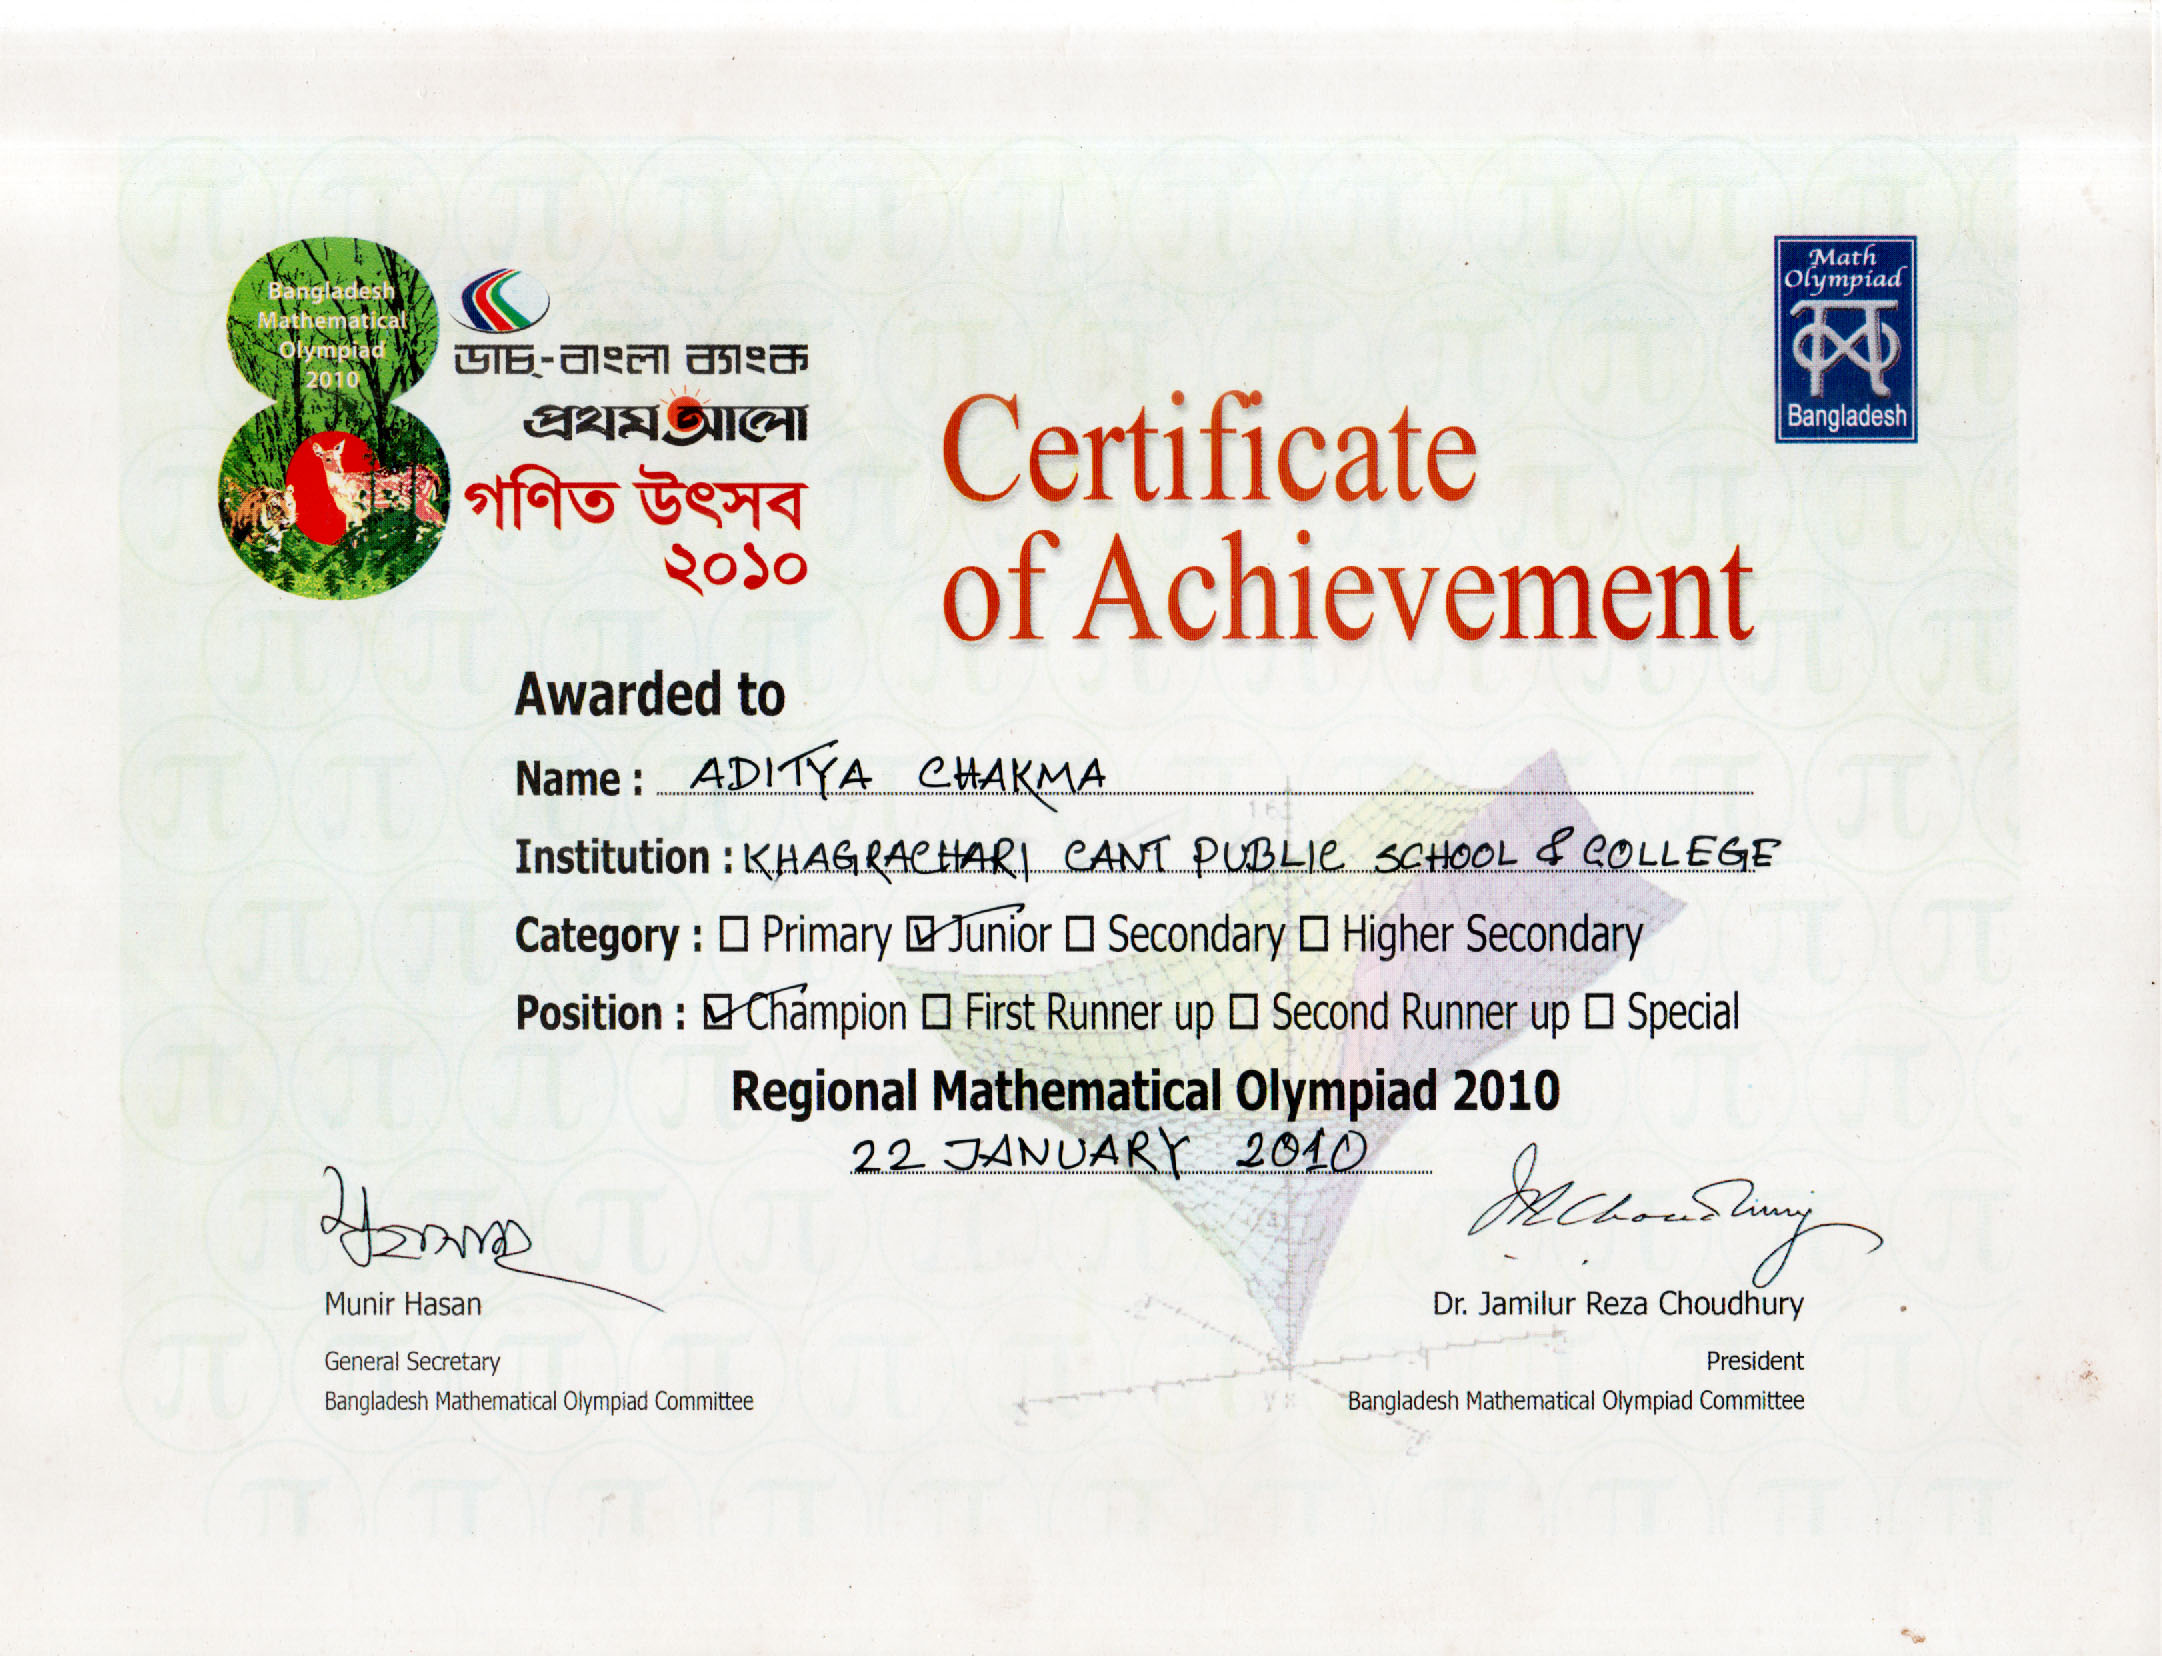 Bangladesh
Mathematical
Olympiad
2010
ডাচ্-বাংলা ব্যাংক
প্রথম আলো
গণিত উৎসব
২০১০
Math
Olympiad
Bangladesh
Certificate
of Achievement
Awarded to
Name : ADITYA CHAKMA
Institution : KHAGRACHARI CANT PUBLIC SCHOOL & COLLEGE
Category : ☐ Primary ☑ Junior ☐ Secondary ☐ Higher Secondary
Position : ☑ Champion ☐ First Runner up ☐ Second Runner up ☐ Special
Regional Mathematical Olympiad 2010
22 JANUARY 2010
JRChoudhury
Munir Hasan
General Secretary
Bangladesh Mathematical Olympiad Committee
Dr. Jamilur Reza Choudhury
President
Bangladesh Mathematical Olympiad Committee